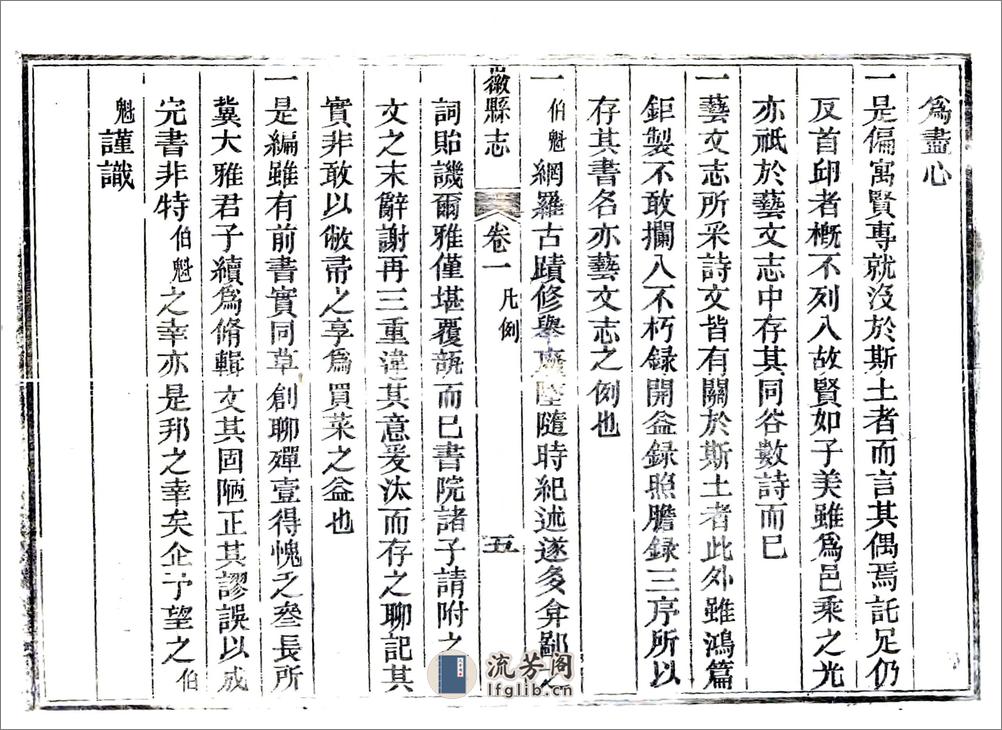 爲盡心
一是偏寓賢專就沒於斯土者而言其偶焉託足仍
反首邱者槪不列入故賢如子美雖爲邑乘之光
亦祇於藝文志中存其同谷數詩而已
一藝文志所采詩文皆有關於斯土者此外雖鴻篇
鉅製不敢攔入不朽録開益録照膽録三序所以
存其書名亦藝文志之例也
一伯魁網羅古蹟修舉廢墜隨時紀述遂多弇鄙之
徽縣志 卷一 凡例 五
詞貽譏爾雅僅堪覆瓿而已書院諸子請附之藝
文之末辭謝再三重違其意爰汰而存之聊記其
實非敢以敝帚之享爲買菜之益也
一是編雖有前書實同草創聊殫壹得愧乏叄長所
冀大雅君子續爲脩輯文其固陋正其謬誤以成
完書非特伯魁之幸亦是邦之幸矣企予望之伯
魁謹識
流芳阁
lfglib.cn